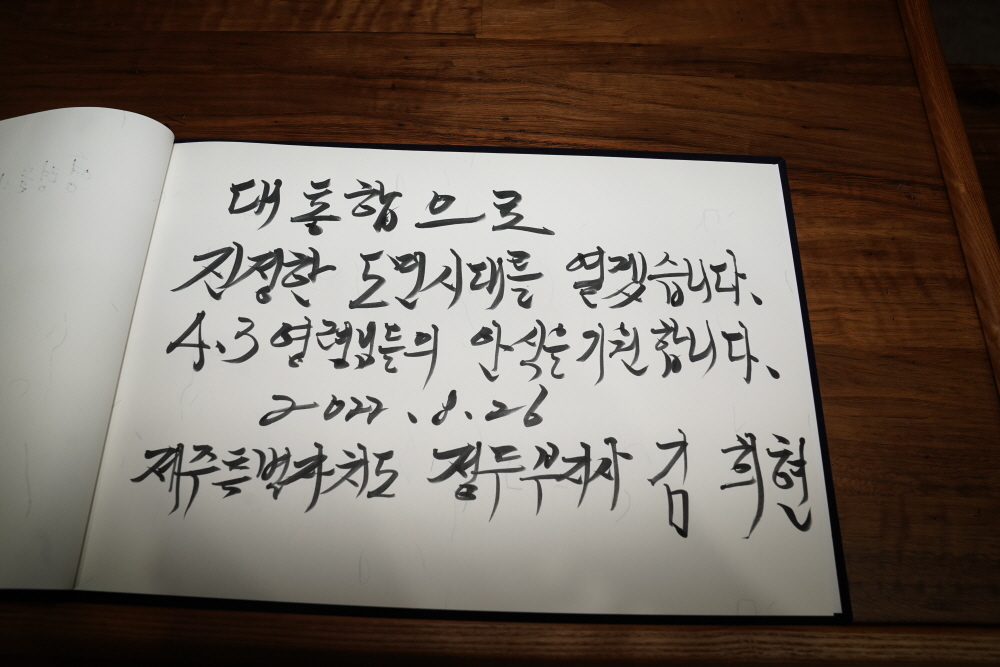 대통합으로
진정한 도민시대를 열겠습니다.
4.3 영령님들의 안식을 기원합니다.
2022.8.26
제주특별자치도 정무부지사 김희현